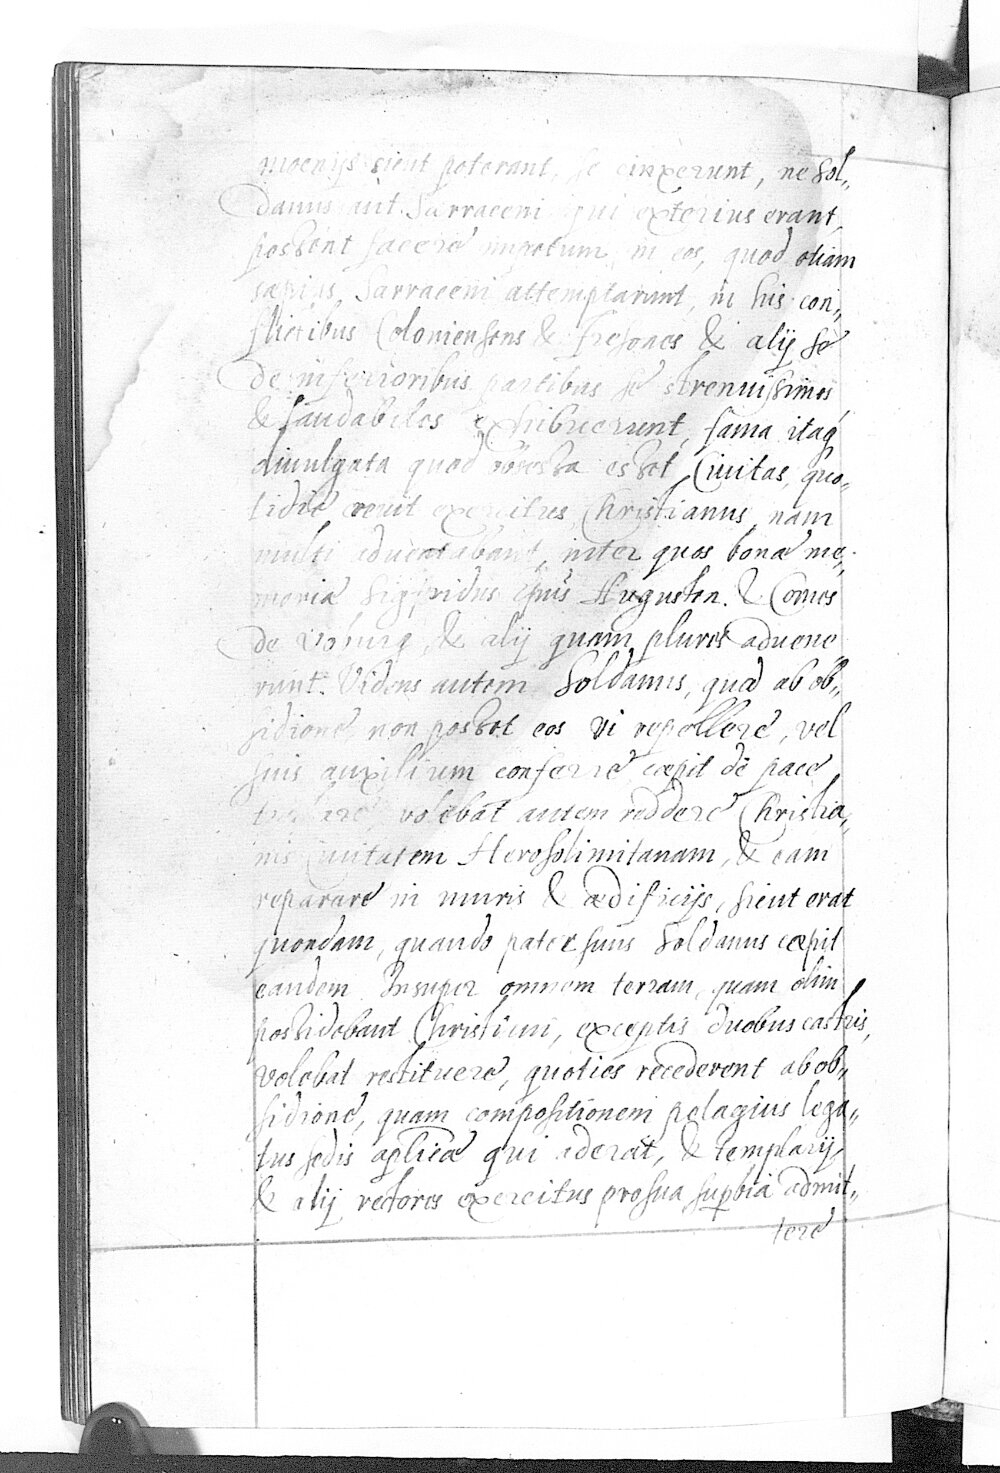 moenijs sicut poterant, se cinxerunt, ne Sol„
danus aut Sarraceni qui exterius erant,
possent facere impetum in eos, quod etiam
sapius Sarraceni attemptarunt, in his con„
flictibus Colonienses & Fresones & alij se
de inferioribus partibus se strenuissimos
& laudabiles exhibuerunt, fama itaq
divulgata quod obsessa esset Civitas, quo„
tidie venit exercitus Christianus, nam
multi aduentabant, inter quos bonæ me„
moriæ Sigfridus Epus Augusten. & Comes
de & alij quam plures aduene„
runt. Videns autem Soldanus, quod ab ob„
sidione non posset eos vi repellere, vel
suis auxilium conferre cœpit de pace
tractare, volebat autem reddere Christia„
nis Civitatem Hierosolimitanam, & eam
reparare in muris & ædificijs, sicut erat
quondam, quando pater suus Soldanus cœpit
eandem. Insuper omnem terram, quam olim
possidebant Christiani, exceptis duobus castris,
volebat restituere, quoties recederent ab ob„
sidione, quam compositionem pelagius lega„
tus sedis aplicæ qui aderat, & templarij
& alij rectores exercitus pro sua supbia admit„
tere